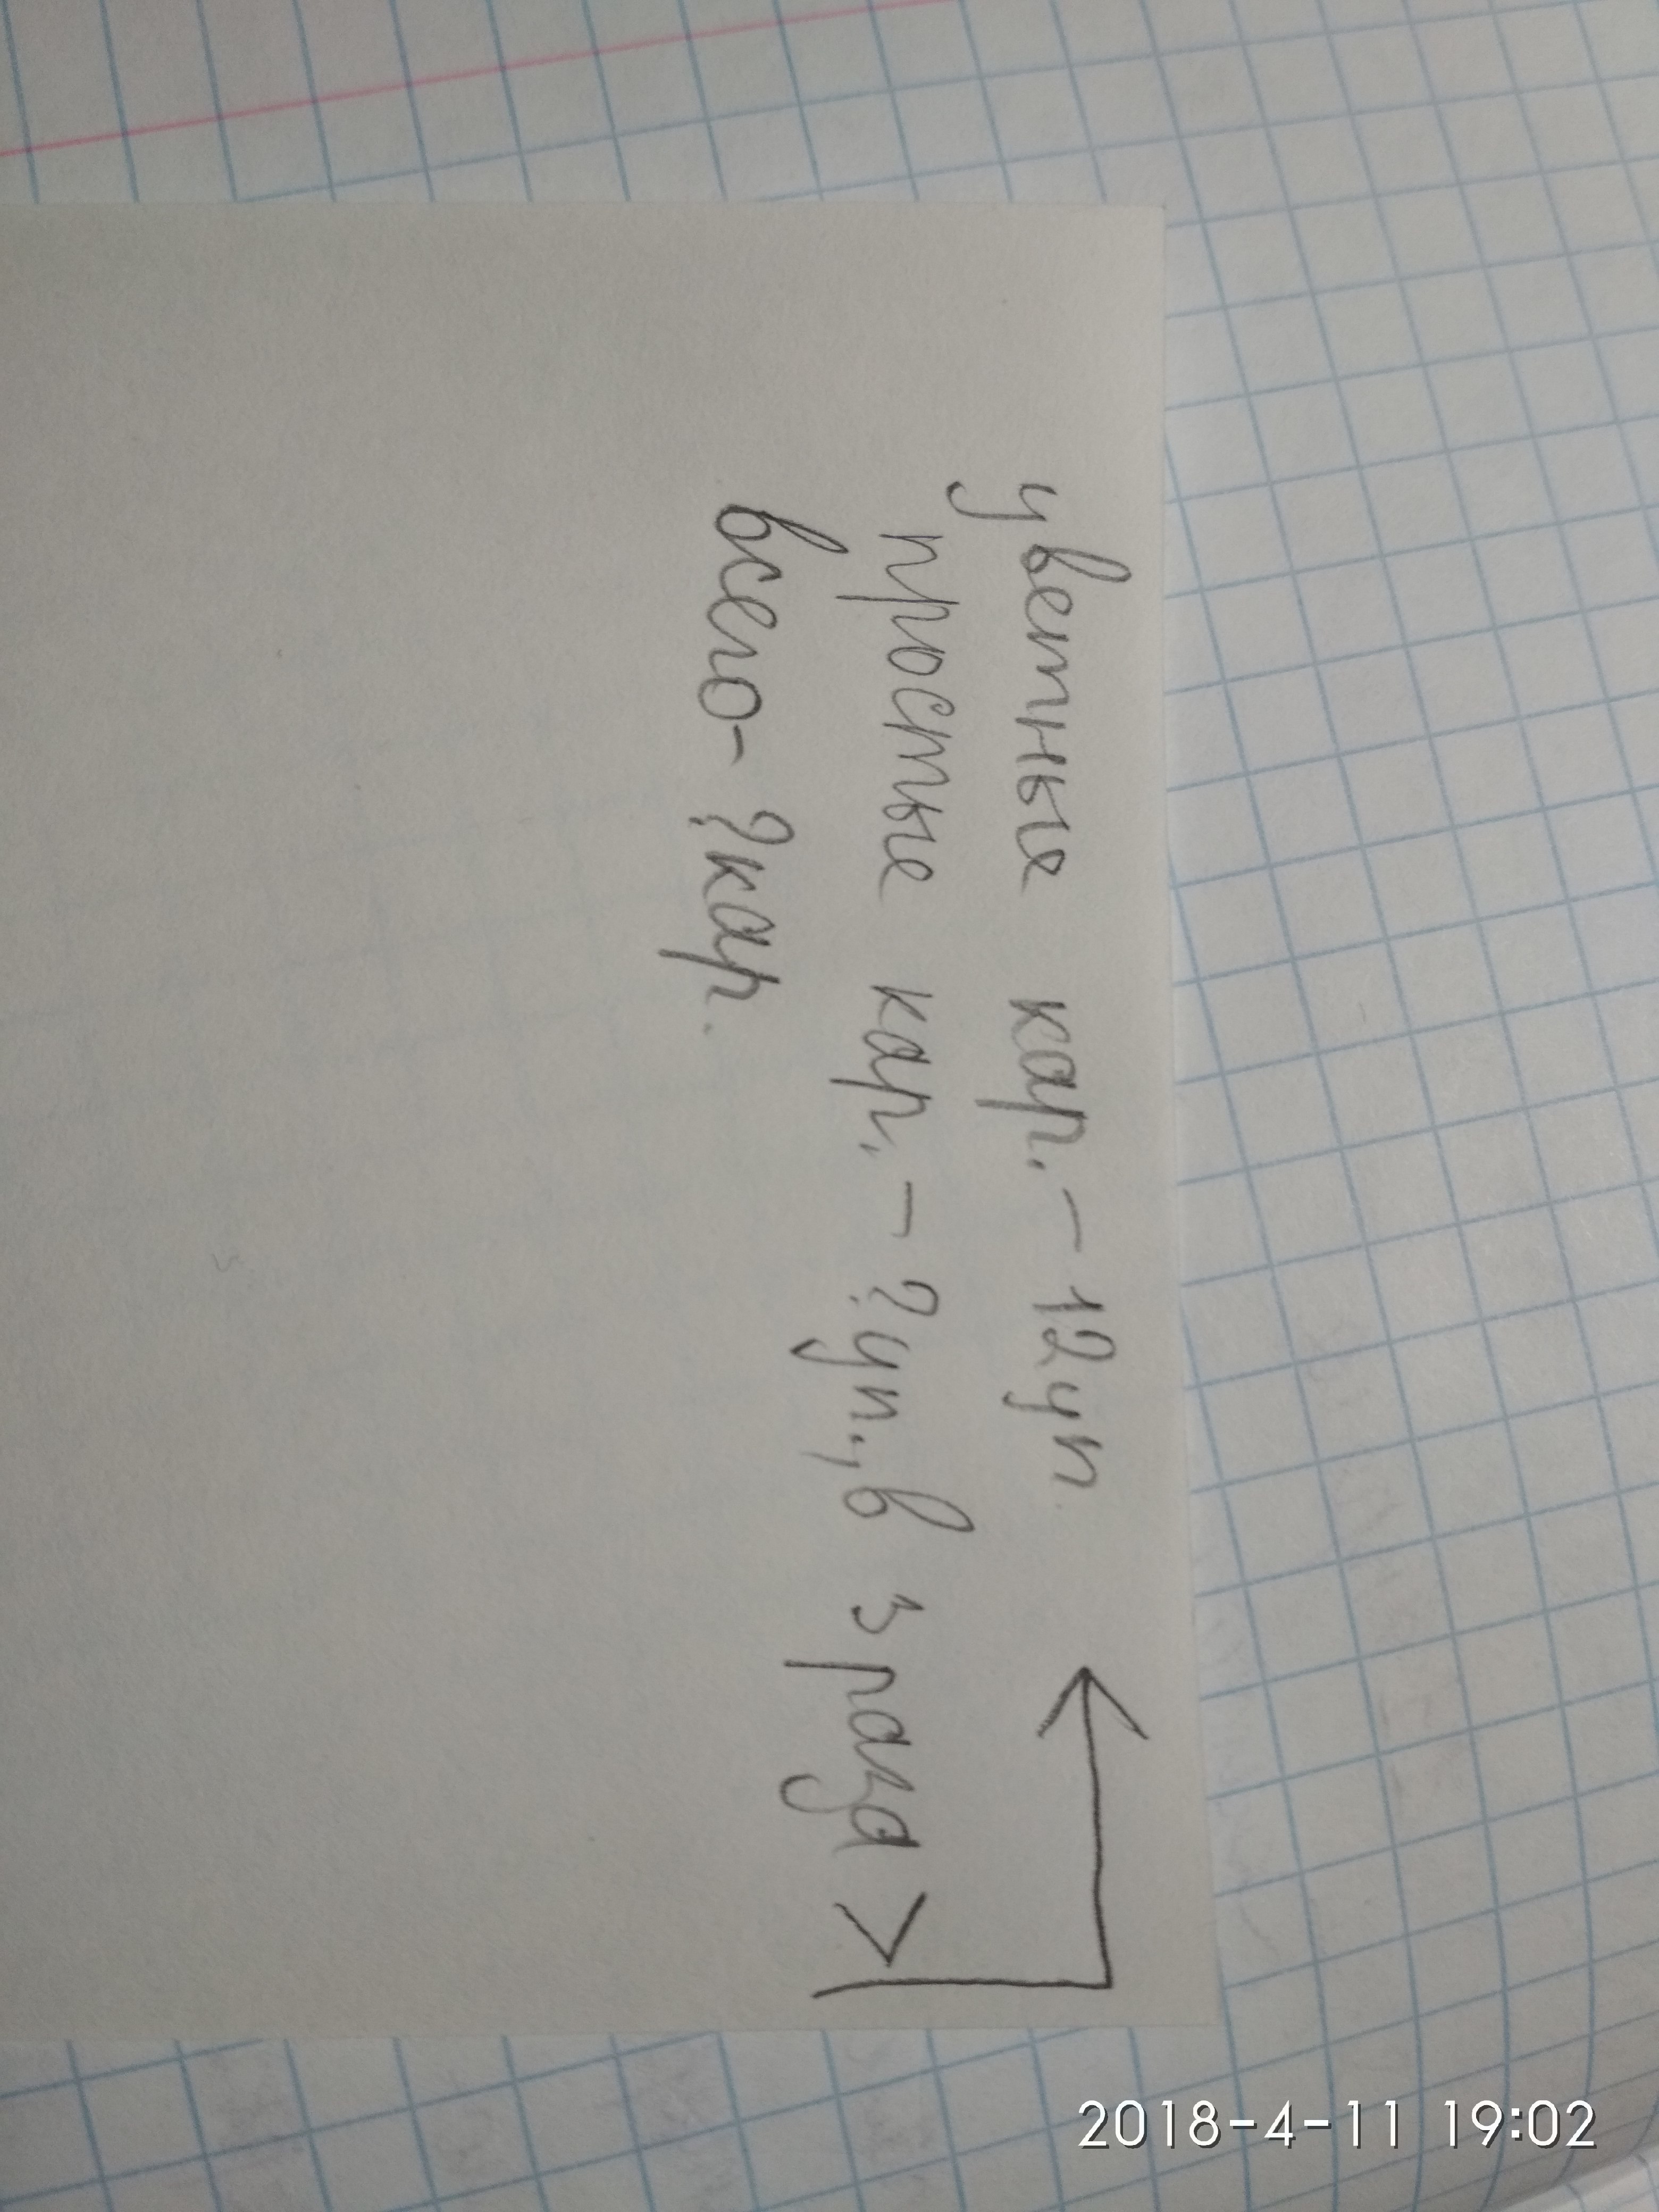 цветные кар. - 12 уп
простые кар. - ? уп., в 3 раза >
всего - ? кар.
2018-4-11 19:02